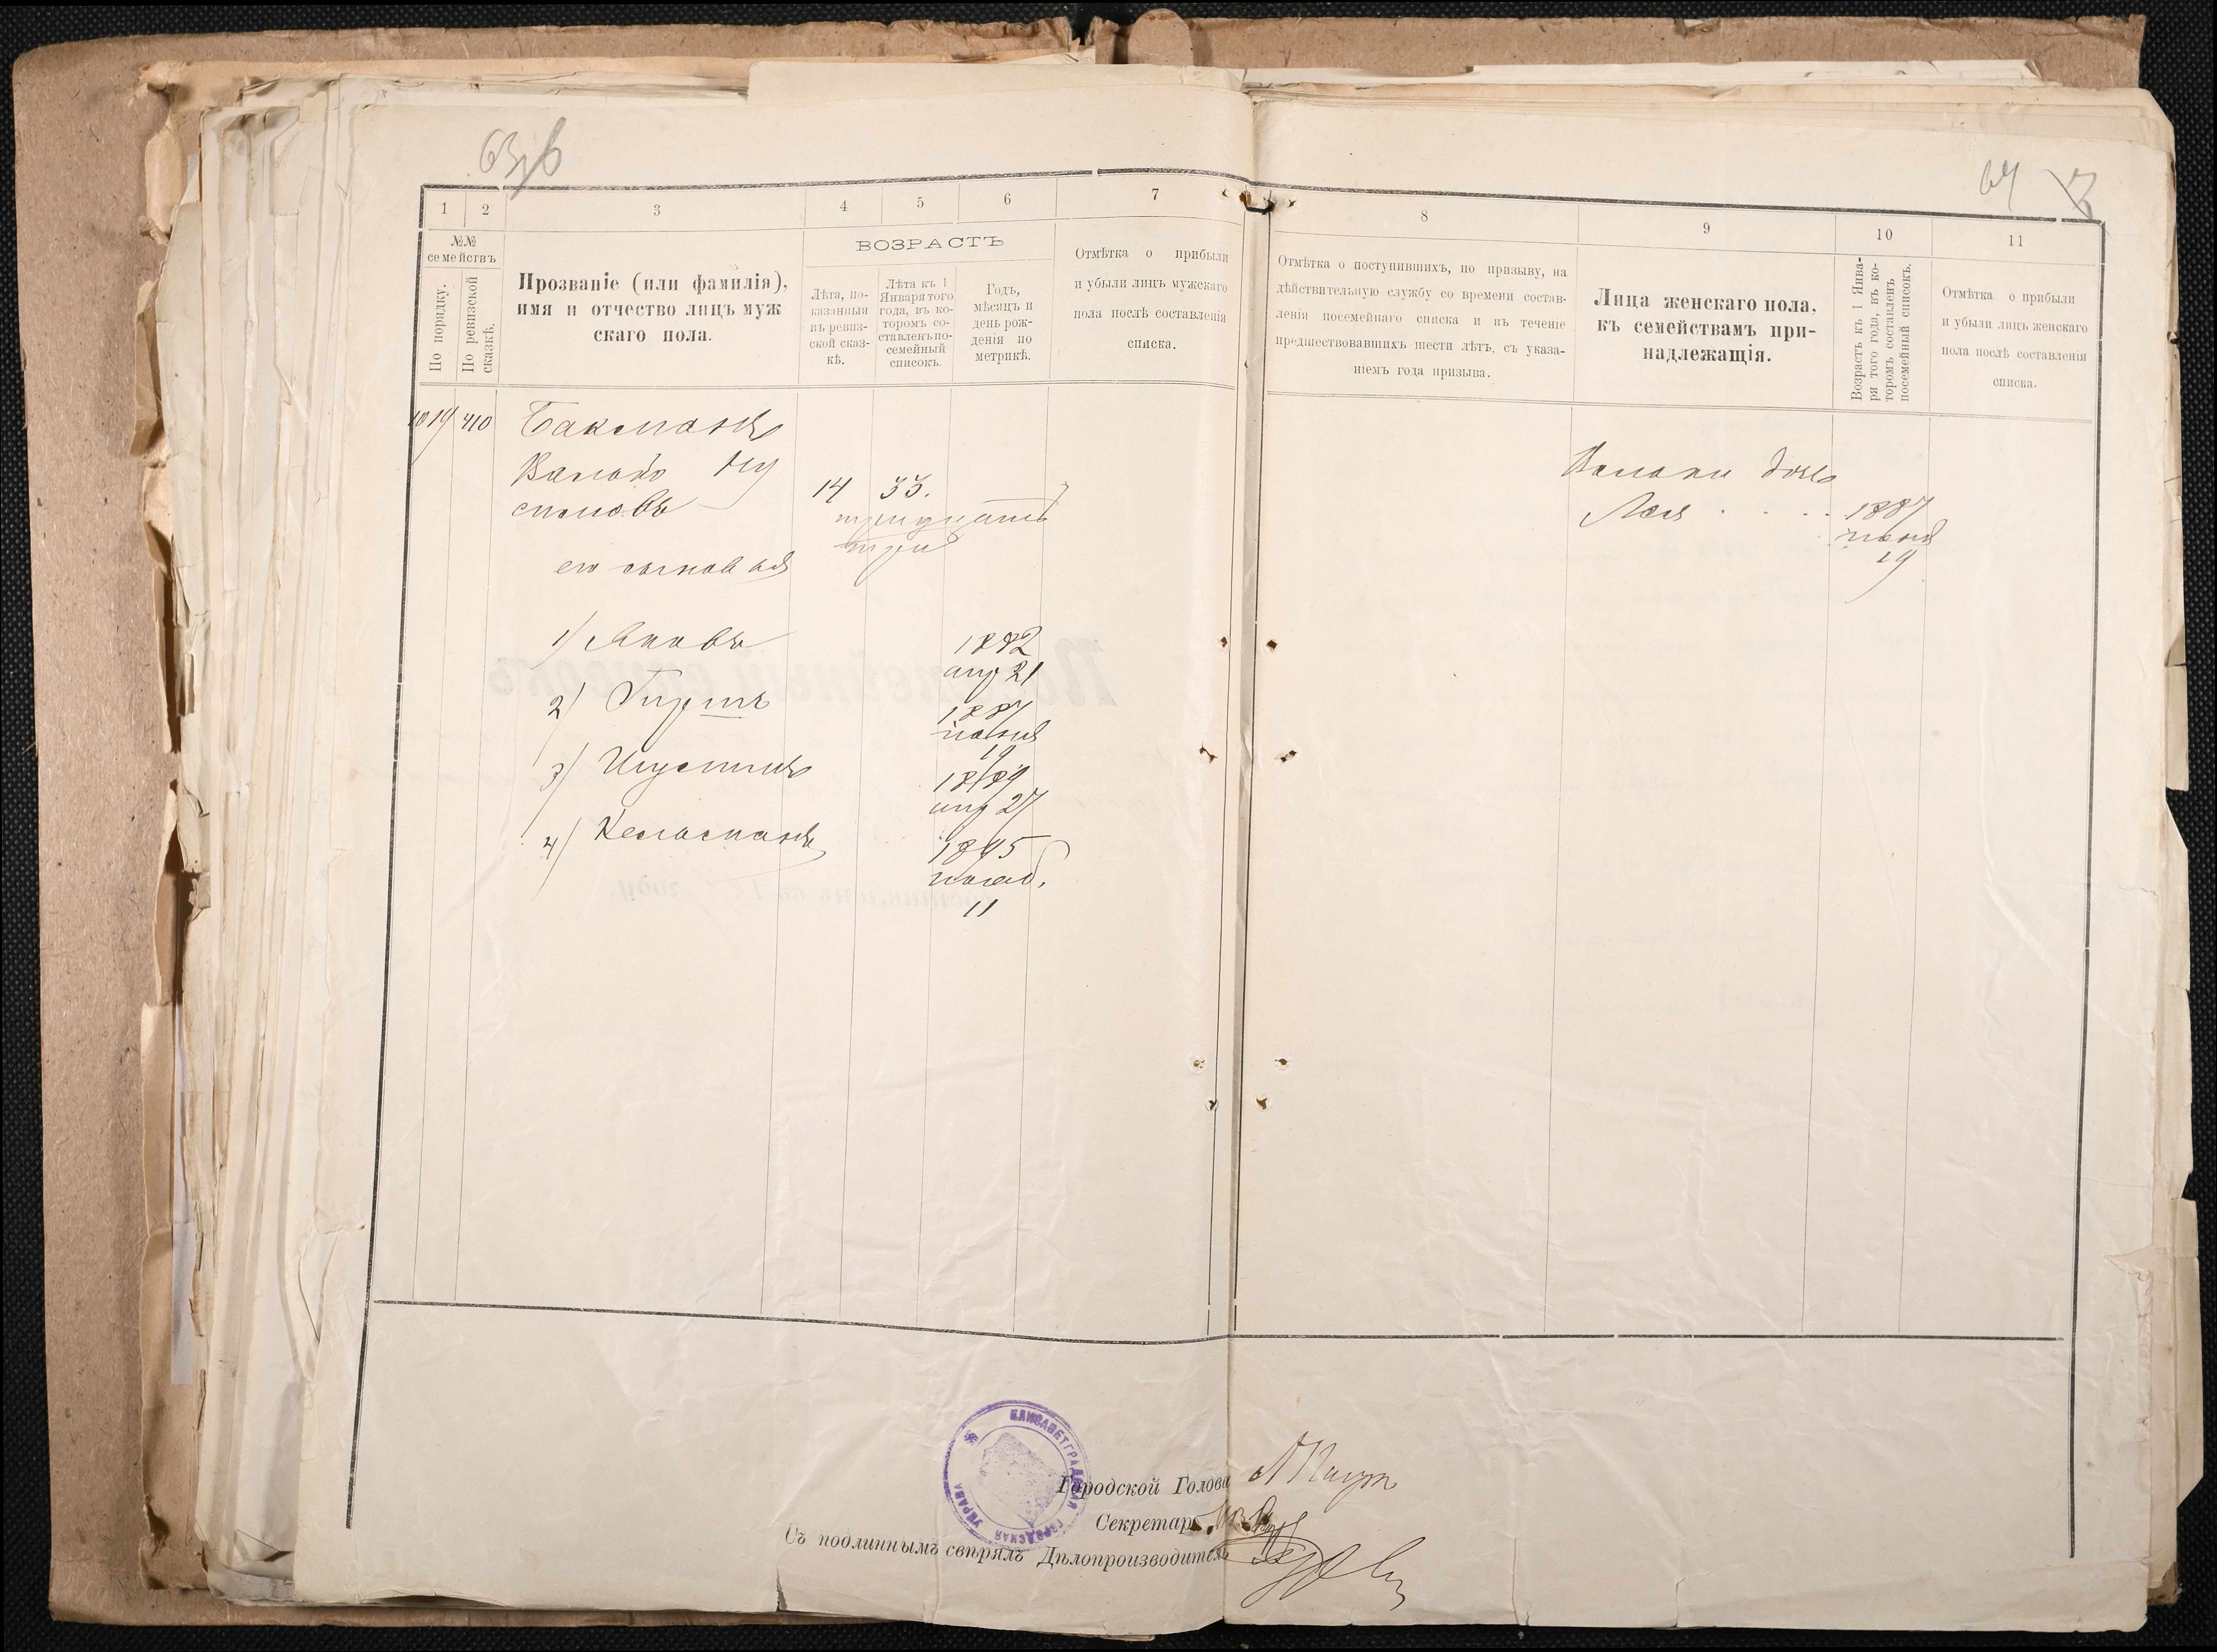 63 об
64
1 2 3 4 5 6 7
№№ семействъ
По порядку.
По ревизской сказкѣ.
Прозваніе (или фамилія),
имя и отчество лицъ муж
скаго пола.
ВОЗРАСТЪ
Лѣта, по-
казанныя
въ ревиз-
ской сказ-
кѣ.
Лѣта къ 1
Января того
года, въ ко-
торомъ со-
ставленъ по-
семейный
списокъ.
Годъ,
мѣсяцъ и
день рож-
денія по
метрикѣ.
Отмѣтка о прибыли
и убыли лицъ мужскаго
пола послѣ составленія
списка.
8 9 10 11
Отмѣтка о поступившихъ, по призыву, на
дѣйствительную службу со времени состав-
ленія посемейнаго списка и въ теченіе
предшествовавшихъ шести лѣтъ, съ указа-
ніемъ года призыва.
Лица женскаго пола,
къ семействамъ при-
надлежащія.
Возрастъ къ 1 Янва-
ря того года, въ ко-
торомъ составленъ
посемейный списокъ.
Отмѣтка о прибыли
и убыли лицъ женскаго
пола послѣ составленія
списка.
1019 410 Бакманъ
14 33.
тридцать
три
его сыновья
1) Яковъ 1882
апр 21
2) Гиршъ 1887
іюня
19
3)
апр 27
4)
11
дочь
Лея . . . . 1887
іюня
19
ЕЛИСАВЕТГРАДСКАЯ ГОРОДСКАЯ УПРАВА
Городской Голова
Секретарь
Съ подлиннымъ свѣрялъ Дѣлопроизводитель